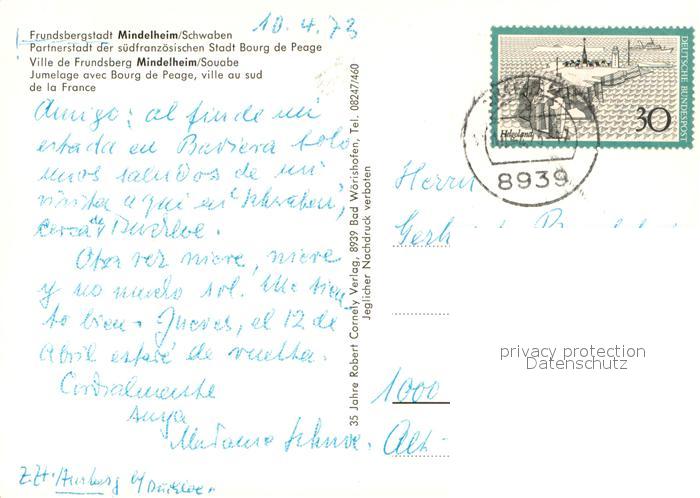 10.4.73
Frundsbergstadt Mindelheim/Schwaben
Partnerstadt der südfranzösischen Stadt Bourg de Peage
Ville de Frundsberg Mindelheim/Souabe
Jumelage avec Bourg de Peage, ville au sud
de la France
Amigo: al fin de mi
estada en Baviera solo
unos saludos de mi
visita aqui en Schwaben,
cerca de Buchloe.
Otra vez nieve, nieve
y no mucho sol. Me sien
to bien. Jueves, el 12 de
Abril estaré de vuelta.
Cordialmente
z.Zt.
35 Jahre Robert Cornely Verlag, 8939 Bad Wörishofen, Tel. 08247/460
Jeglicher Nachdruck verboten
DEUTSCHE BUNDESPOST
Helgoland
30
8939
Herrn
1000
privacy protection
Datenschutz